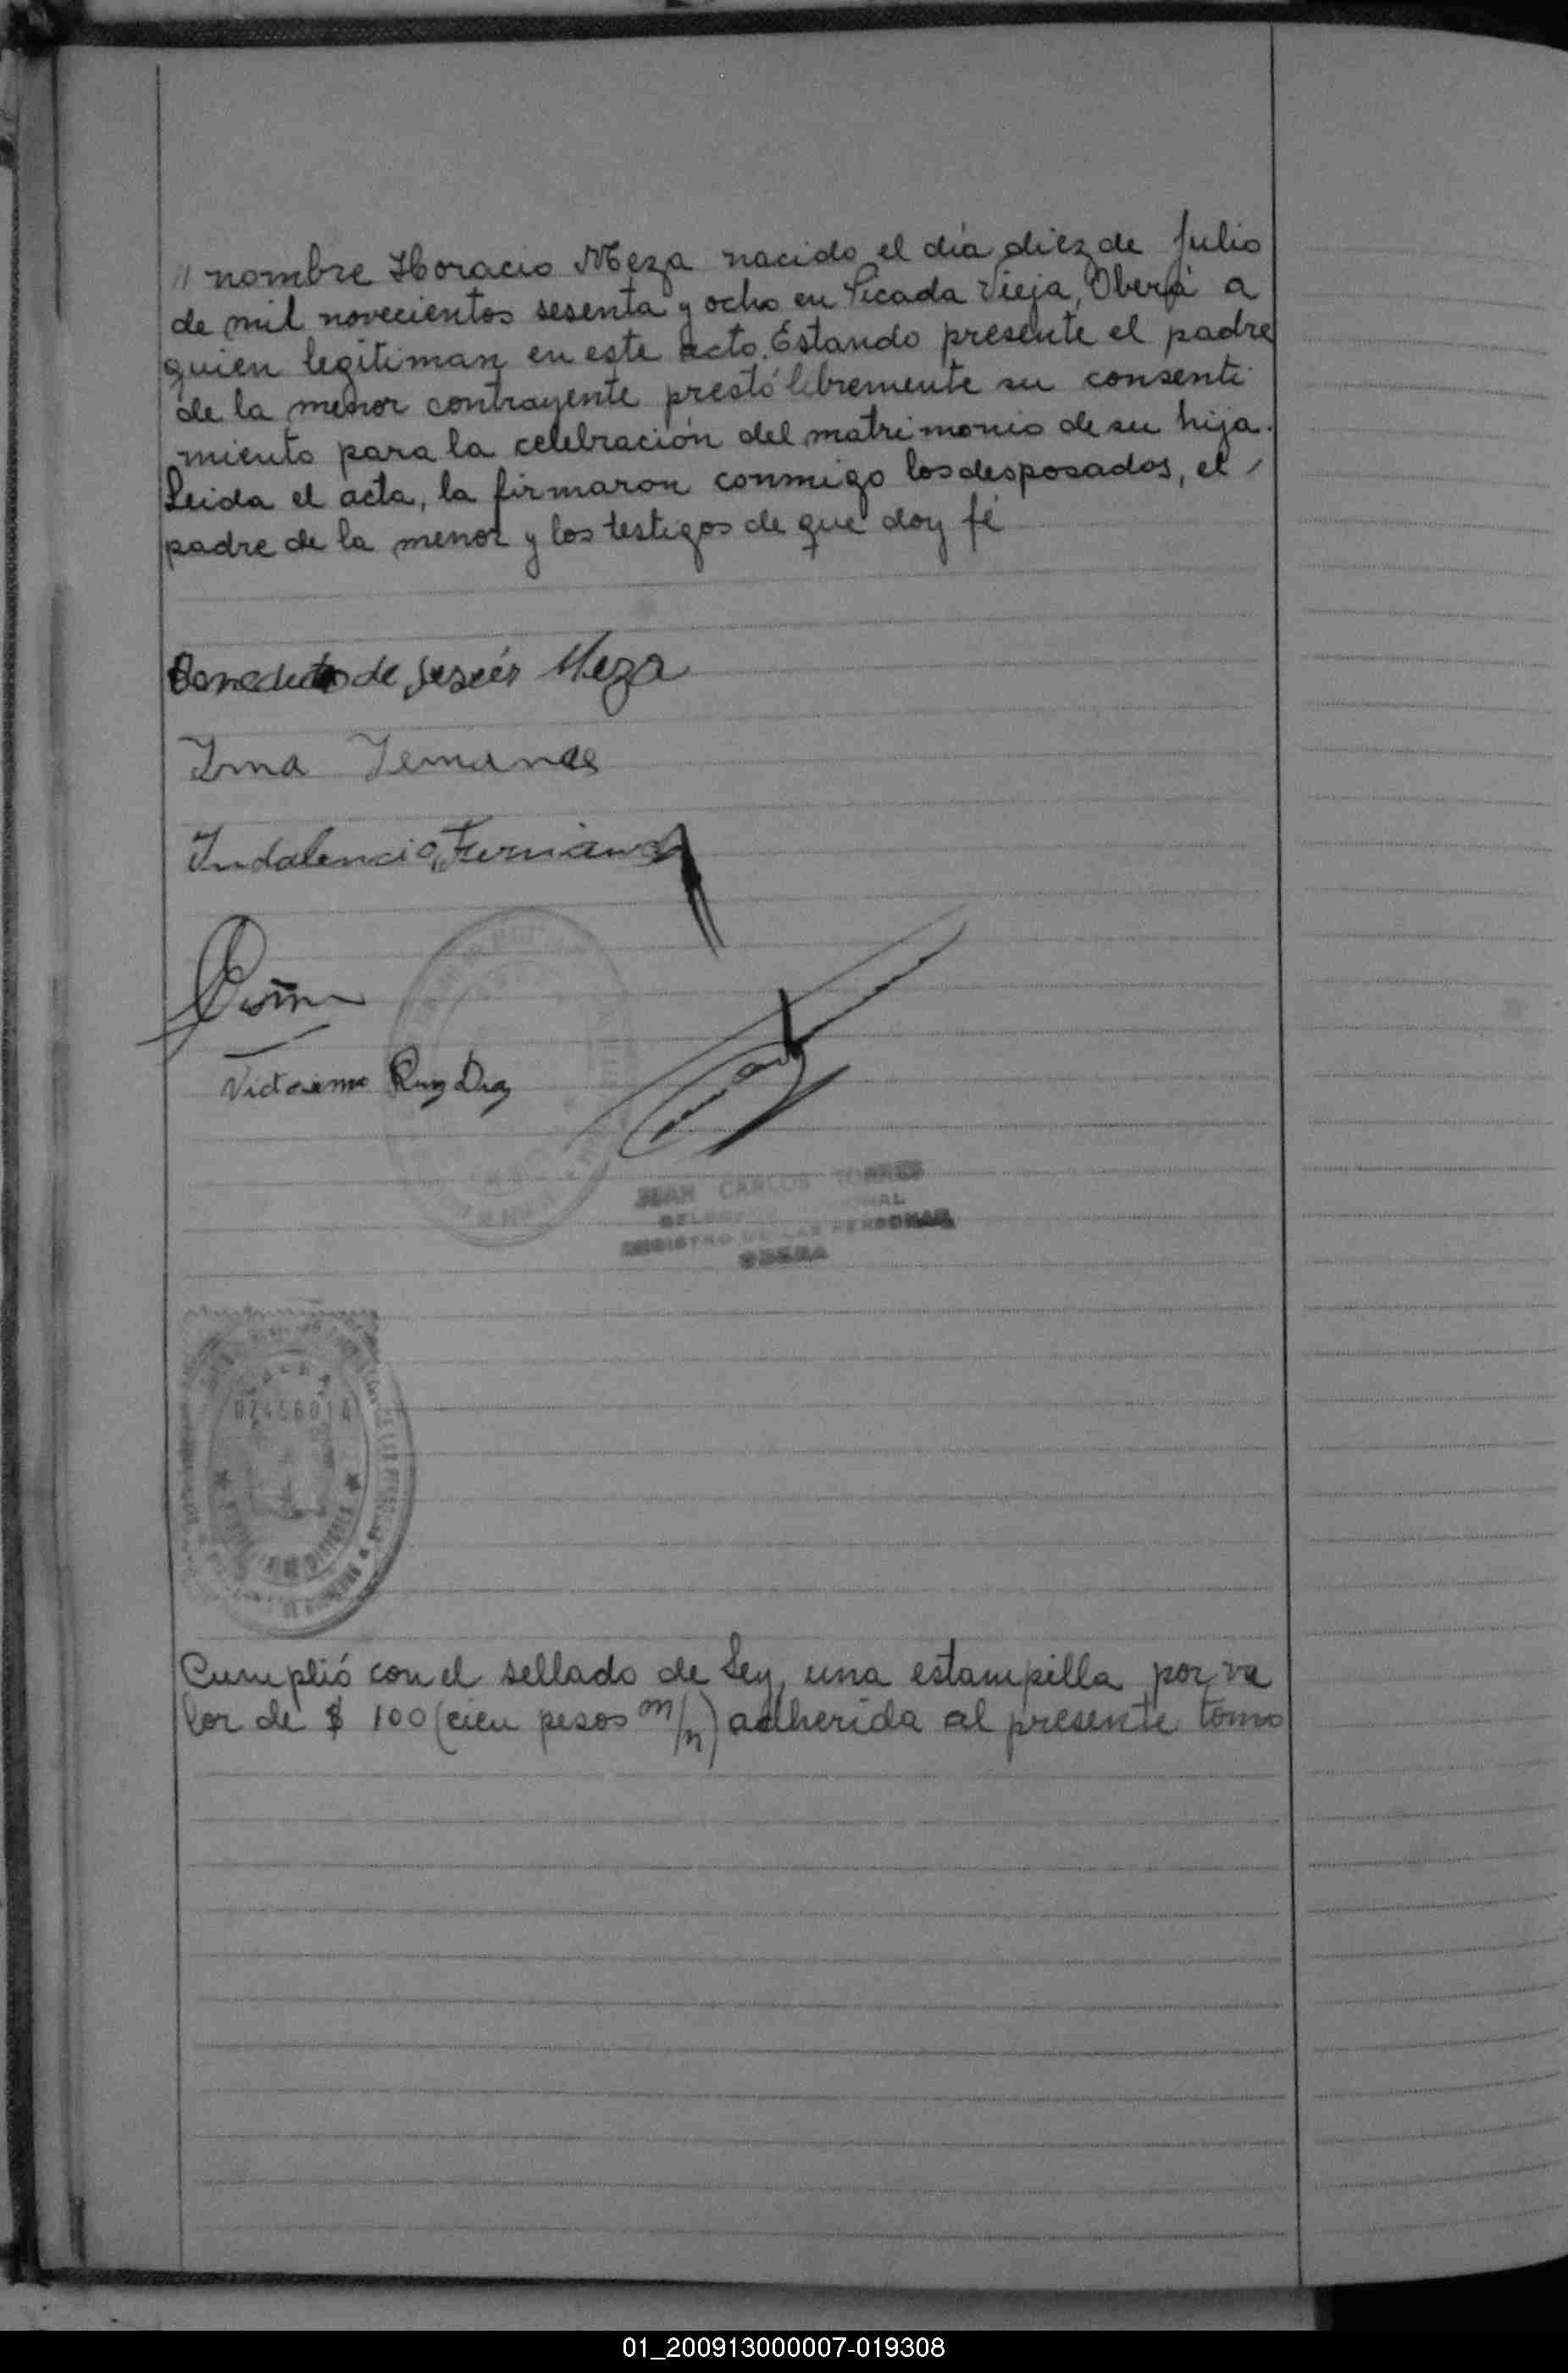 // nombre Horacio Meza nacido el día diez de Julio
de mil novecientos sesenta y ocho en Picada Vieja, Oberá a
quien legitiman en este acto. Estando presente el padre
de la menor contrayente prestó libremente su consenti
miento para la celebración del matrimonio de su hija.
Leida el acta, la firmaron conmigo los desposados, el /
padre de la menor y los testigos de que doy fé
de Jesús Meza
Indalencio Fernand
Ruiz Diaz
JUAN CARLOS TORRES
REGISTRO DE LAS PERSONAS
OBERA
PROVINCIA DE MISIONES
Cumplió con el sellado de Ley, una estampilla por va
lor de $ 100 (cien pesos m/n) adherida al presente tomo
01_200913000007-019308